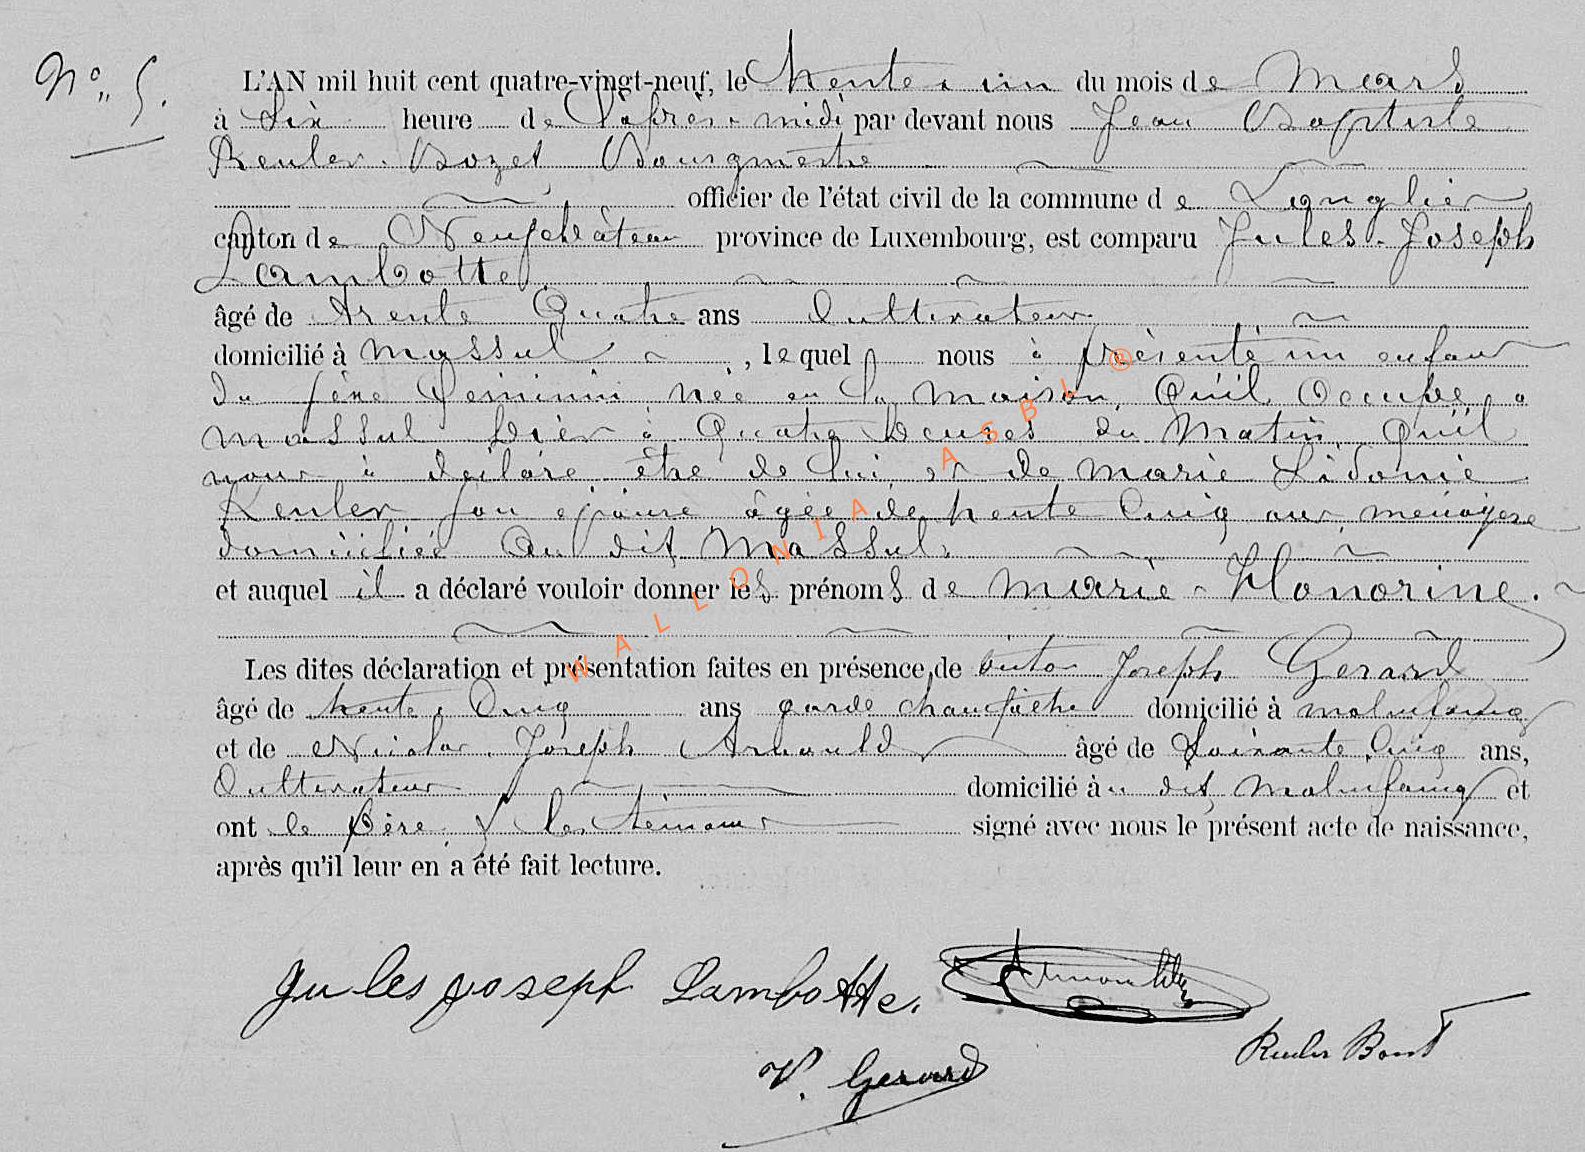 N° 5.
L'AN mil huit cent quatre-vingt-neuf, le trente un du mois de Mars
à Six heure de l'après-midi par devant nous Jean Baptiste
Reuler Bozet Bourgmestre
officier de l'état civil de la commune de Longlier
canton de Neufchâteau province de Luxembourg, est comparu Jules-Joseph
Lambotte
âgé de trente Quatre ans Cultivateur
domicilié à Massul, lequel nous à présenté un enfant
du sexe féminin née en la maison Qu'il Occupe à
Massul hier à Quatre heures du Matin, Qu'il
nous à déclaré être de lui et de Marie Sidonie
Reuler son épouse âgée de trente Cinq ans ménagère
domiciliée Au dit Massul
et auquel il a déclaré vouloir donner les prénoms de Marie-Honorine.
Les dites déclaration et présentation faites en présence de Victor Joseph Gerard
âgé de trente Cinq ans garde champêtre domicilié à Molinfaing
et de Nicolas Joseph Arnould âgé de Soixante Cinq ans,
Cultivateur domicilié au dit Molinfaing et
ont le père & les témoins signé avec nous le présent acte de naissance,
après qu'il leur en a été fait lecture.
Jules Joseph Lambotte.
Arnould
V. Gerard
WALLONIA ASBL ®